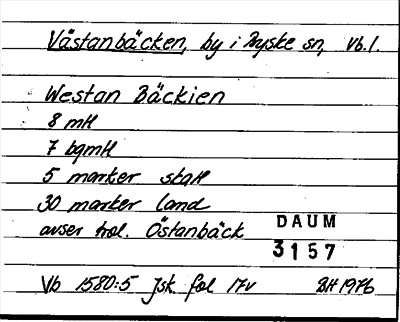 Västanbäcken, by i Byske sn, Vb.l.
Westan Bäckien
8 mH
7 bgmH
5 marker skgH
30 marker land
avser trol. Östanbäck
DAUM
3157
Vb 1580:5 Jsk. fol 17v BH 1976